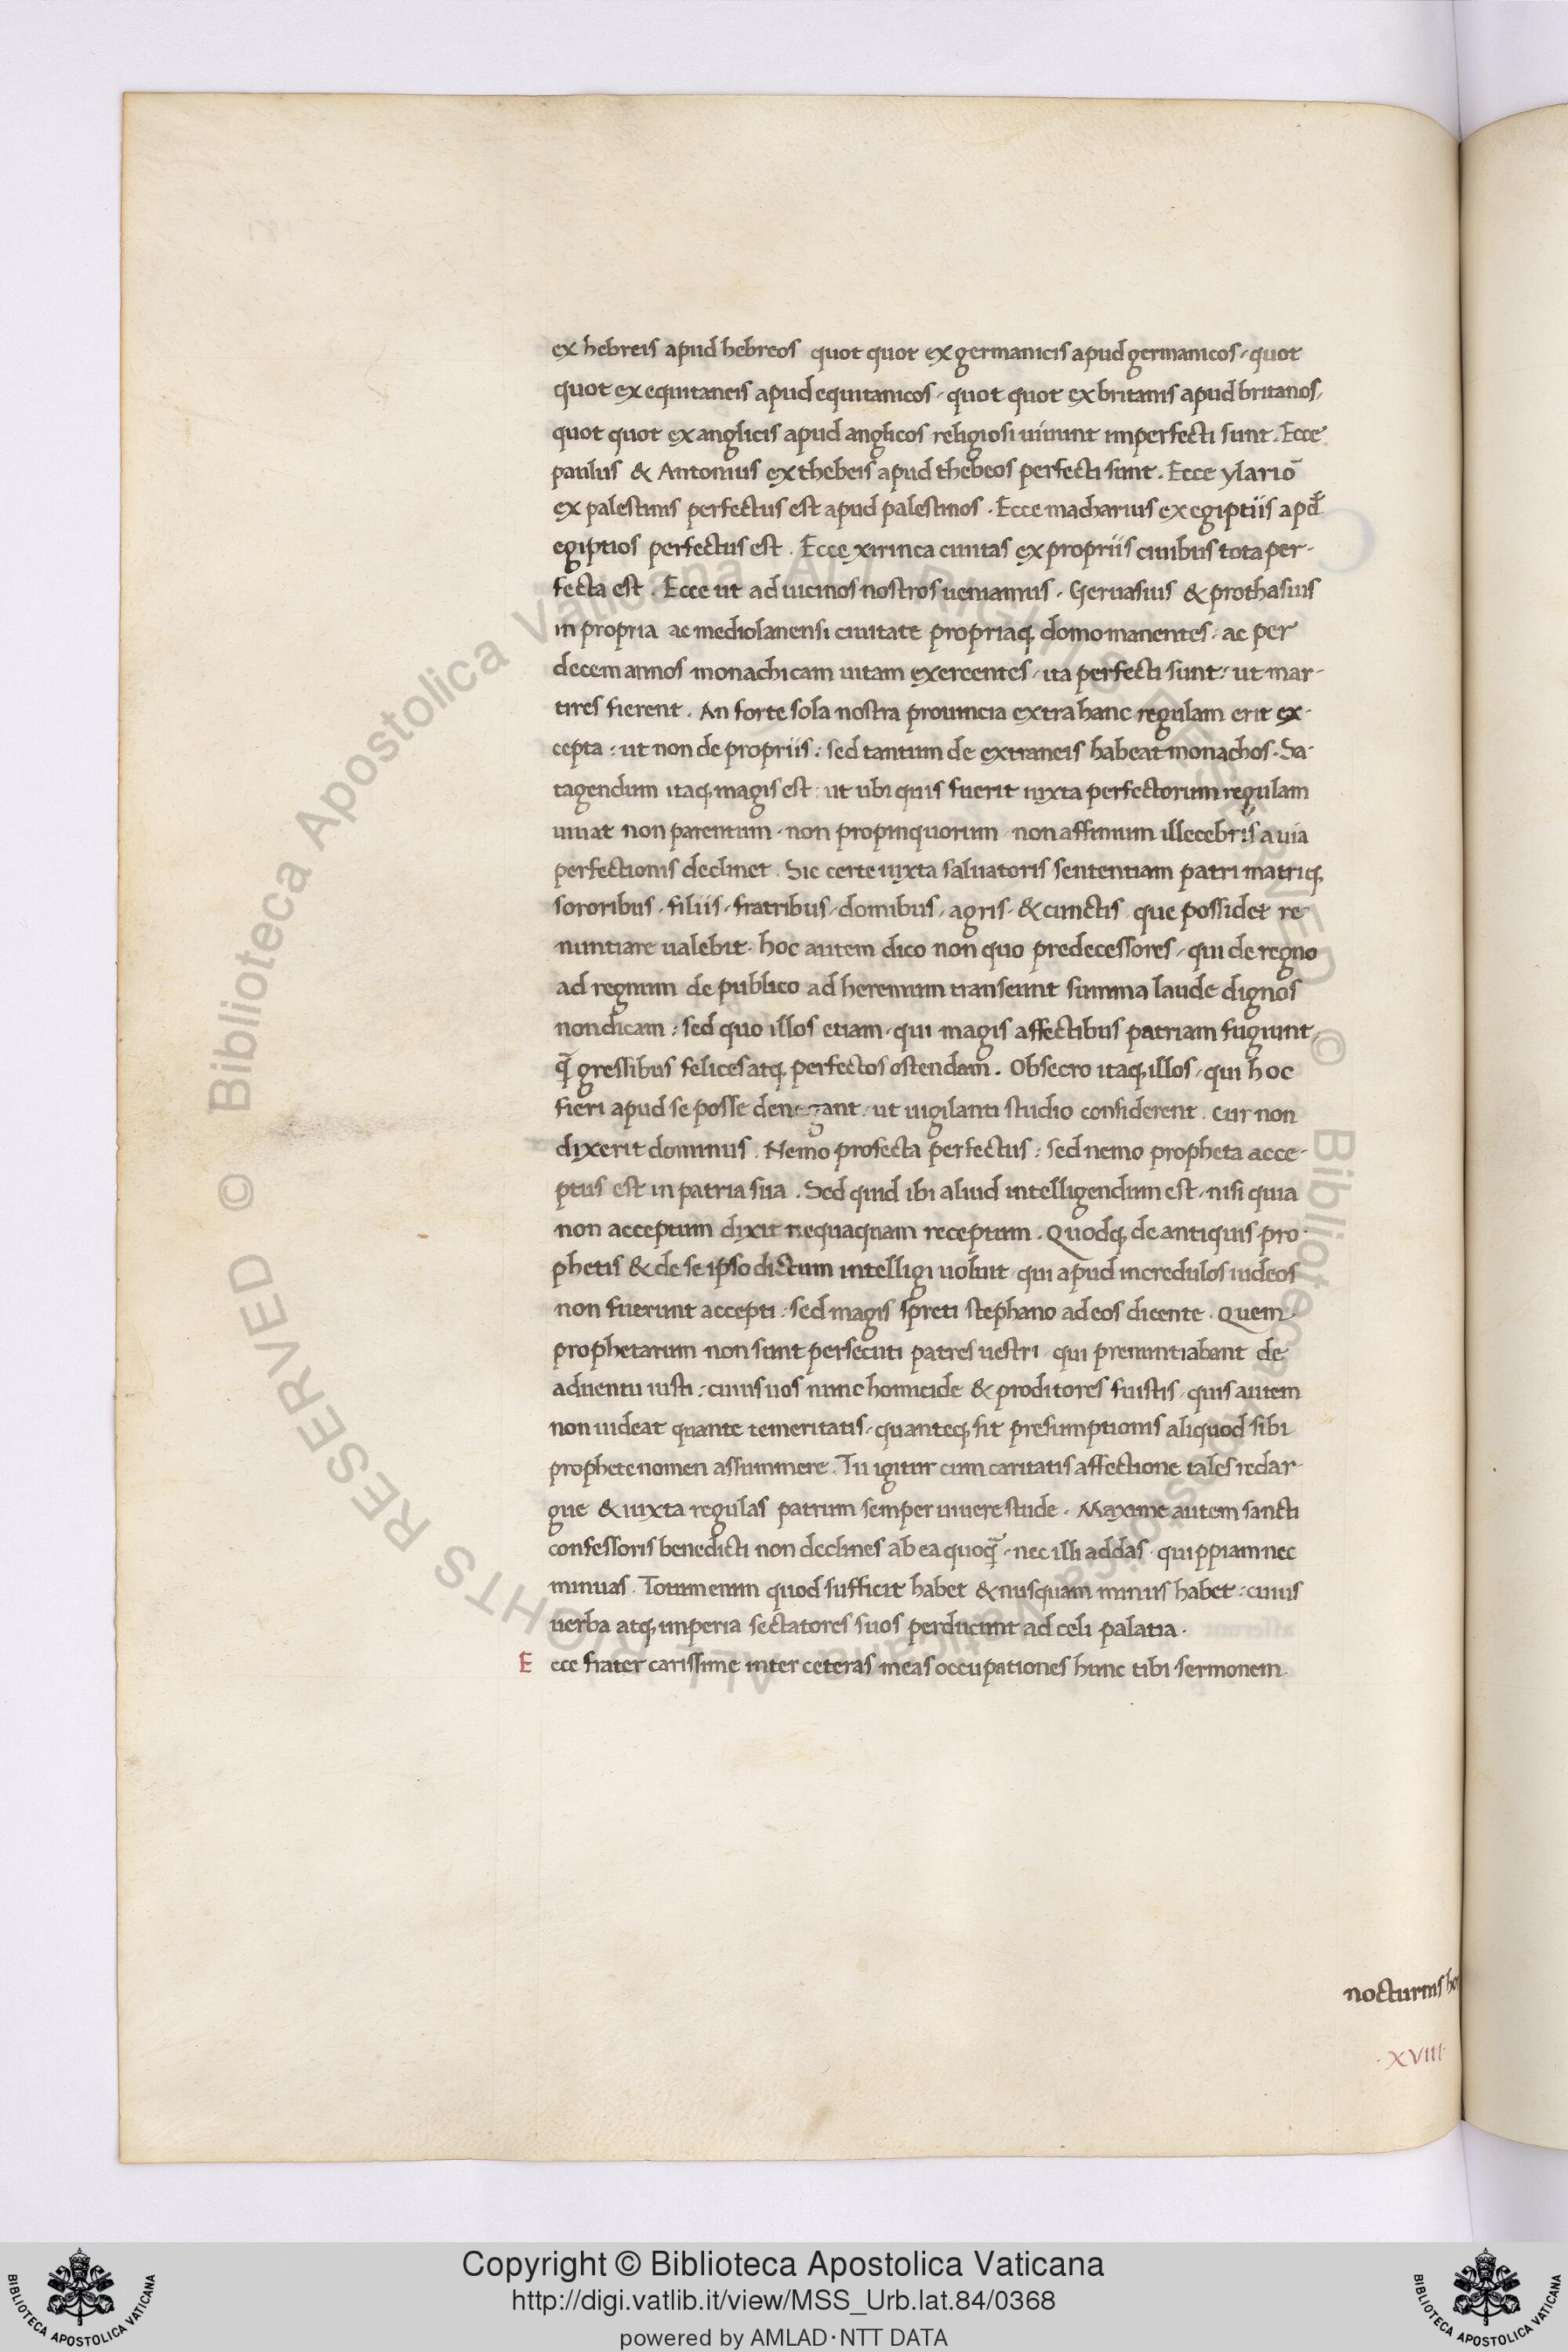 ex hebreis apud hebreos quot quot ex germanicis apud germanicos, quot
quot ex equitaneis apud equitanicos, quot quot ex britanis apud britanos,
quot quot ex anglicis apud anglicos religiosi uiuunt imperfecti sunt. Ecce
paulus & Antonius ex thebeis apud thebeos perfecti sunt. Ecce ylariō
ex palestinis perfectus est apud palestinos. Ecce macharius ex egiptiis apđ
egiptios perfectus est. Ecce xirinca ciuitas ex propriis ciuibus tota per-
fecta est. Ecce ut ad uicinos nostros ueniamus. Geruasius & prothasius
in propria ac mediolanensi ciuitate propriaq; domo manentes, ac per
decem annos monachicam uitam exercentes, ita perfecti sunt: ut mar-
tires fierent. An forte sola nostra prouincia extra hanc regulam erit ex-
cepta: ut non de propriis: sed tantum de extraneis habeat monachos. Sa-
tagendum itaq; magis est: ut ubi quis fuerit iuxta perfectorum regulam
uiuat non parentum, non propinquorum, non affinium illecebris a uia
perfectionis declinet. Sic certe iuxta saluatoris sententiam patri matriq;
sororibus, filiis, fratribus, domibus, agris, & cunctis que possidet re
nuntiare ualebit. hoc autem dico non quo predecessores, qui de regno
ad regnum de publico ad heremum transeunt summa laude dignos
non dicam: sed quo illos etiam, qui magis affectibus patriam fugiunt,
q̄ gressibus felices atq; perfectos ostendam. Obsecro itaq; illos, qui hoc
fieri apud se posse denegant: ut uigilanti studio considerent. Cur non
dixerit dominus. Nemo profecta perfectus: sed nemo propheta acce-
ptus est in patria sua. Sed quid ibi aliud intelligendum est, nisi quia
non acceptum dixit nequaquam receptum. Quodq; de antiquis pro-
phetis & de se ipso dictum intelligi uoluit qui apud incredulos iudeos
non fuerunt accepti: sed magis spreti stephano ad eos dicente. Quem
prophetarum non sunt persecuti patres uestri, qui prenuntiabant de
aduentu iusti: cuius uos nunc homicide & proditores fuistis, quis autem
non uideat quante temeritatis, quanteq; sit presumptionis aliquod sibi
prophete nomen assummere. Tu igitur cum caritatis affectione tales redar-
gue & iuxta regulas patrum semper uiuere stude. Maxime autem sancti
confessoris benedicti non declines ab ea quoq̄, nec illi addas quippiam nec
minuas. Totum enim quod sufficit habet & nusquam minus habet: cuius
uerba atq; imperia sectatores suos perducunt ad celi palatia.
E ece frater carissime inter ceteras meas occupationes hunc tibi sermonem
nocturnis ho
.XVIII.
© Biblioteca Apostolica Vaticana ALL RIGHTS RESERVED © Biblioteca Apostolica Vaticana ALL RIGHTS RESERVED
Copyright © Biblioteca Apostolica Vaticana
http://digi.vatlib.it/view/MSS_Urb.lat.84/0368
powered by AMLAD·NTT DATA
BIBLIOTECA APOSTOLICA VATICANA
BIBLIOTECA APOSTOLICA VATICANA